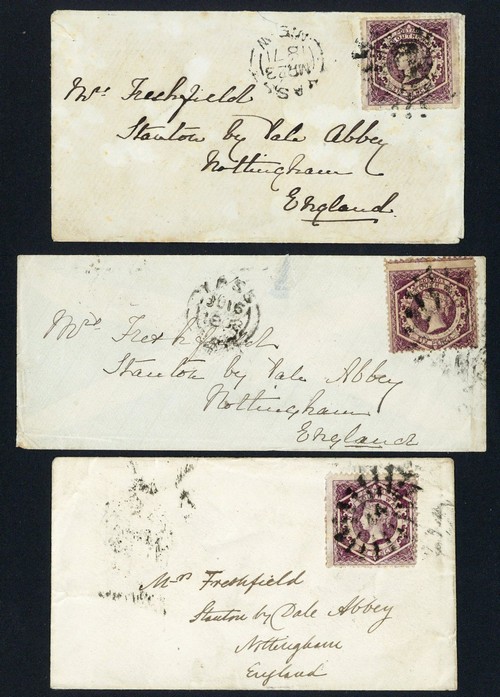 YASS
MR 23
1871
Mrs Freshfield
Stanton by Dale Abbey
Nottingham
England.
YASS
16
Mrs Freshfield
Stanton by Dale Abbey
Nottingham
England
Mrs Freshfield
Stanton by Dale Abbey
Nottingham
England